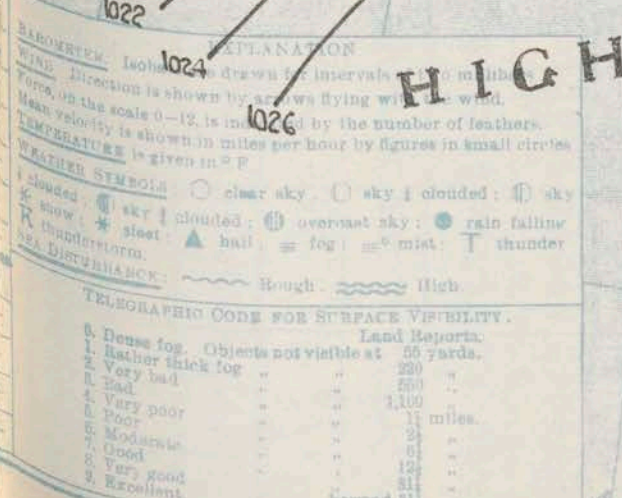 1022
1024
1026
HIGH
EXPLANATION
BAROMETER. Isobars drawn for intervals of two millibars
WIND. Direction is shown by arrows flying with the wind.
Force, on the scale 0-12, is indicated by the number of feathers.
Mean velocity is shown in miles per hour by figures in small circles
TEMPERATURE is given in ° F
WEATHER SYMBOLS. clear sky. sky ¼ clouded; sky
clouded; sky ¾ clouded; overcast sky; rain falling
snow; sleet; hail; fog; mist; T thunder
thunderstorm.
SEA DISTURBANCE: Rough. High.
TELEGRAPHIC CODE FOR SURFACE VISIBILITY.
Land Reports.
0. Dense fog. Objects not visible at 55 yards.
1. Rather thick fog " " 220 "
2. Very bad " " 550 "
3. Bad " " 1,100 "
4. Very poor " " 1¼ miles.
5. Poor " " 2½ "
6. Moderate " " 6¼ "
7. Good " " 12½ "
8. Very good " " 31¼ "
9. Excellent